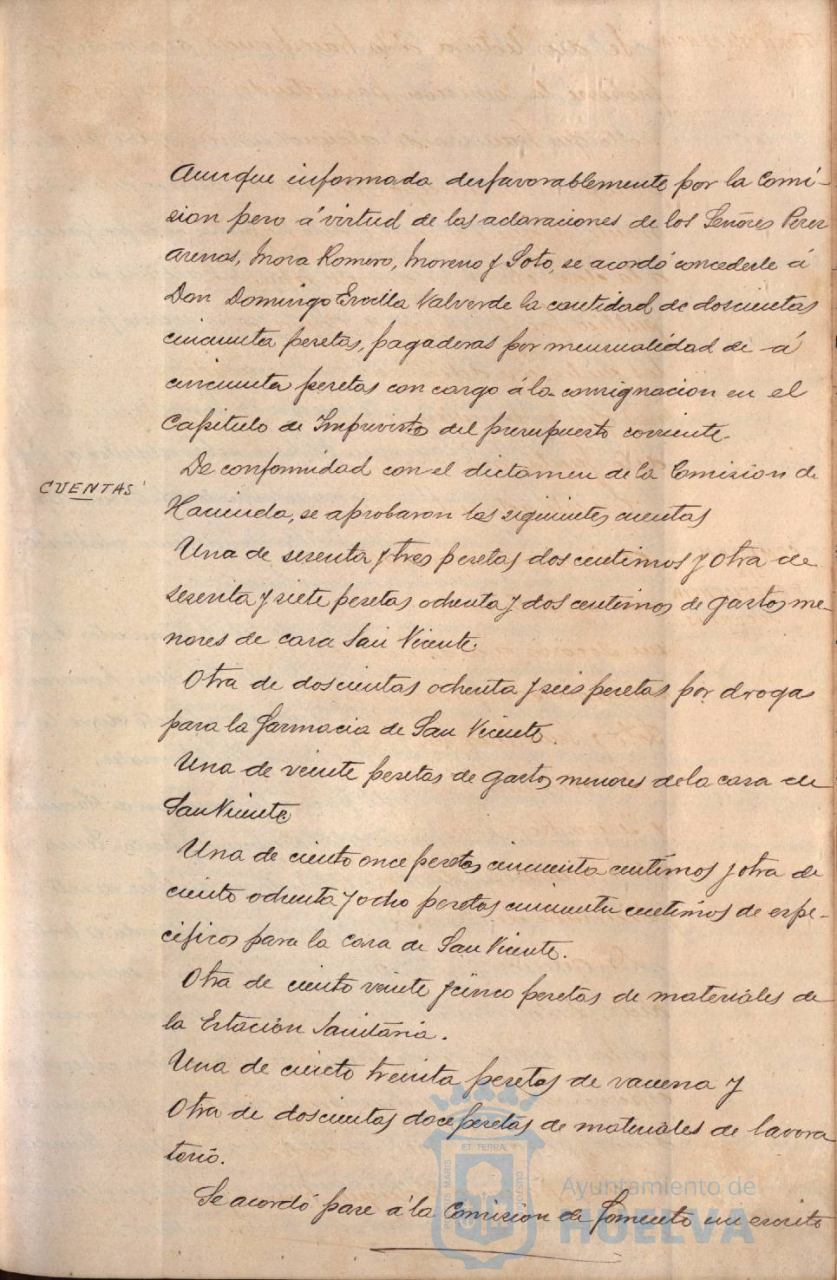 Aunque informada desfavorablemente por la Comi-
sion pero á virtud de las aclaraciones de los Señores Perez
Arenas, Mora Romero, Moreno y Soto, se acordó concederle á
Don Domingo Ercilla Valverde la cantidad de doscientas
cincuenta pesetas, pagaderas por mensualidad de á
cincuenta pesetas con cargo á la consignacion en el
Capitulo de Imprevistos del presupuesto corriente.
De conformidad con el dictamen de la Comision de
CUENTAS
Hacienda, se aprobaron las siguientes cuentas
Una de sesenta y tres pesetas dos centimos y otra de
sesenta y siete pesetas ochenta y dos centimos de gastos me-
nores de casa San Vicente.
Otra de doscientas ochenta y seis pesetas por drogas
para la farmacia de San Vicente.
Una de veinte pesetas de gastos menores de la casa de
San Vicente
Una de ciento once pesetas cincuenta centimos y otra de
ciento ochenta y ocho pesetas cincuenta centimos de espe-
cificos para la casa de San Vicente.
Otra de ciento veinte y cinco pesetas de materiales de
la Estación Sanitária.
Una de ciento treinta pesetas de vacuna y
Otra de doscientas doce pesetas de materiales de lavora
torio.
Se acordó pase á la Comision de Fomento un escrito
Ayuntamiento de
HUELVA